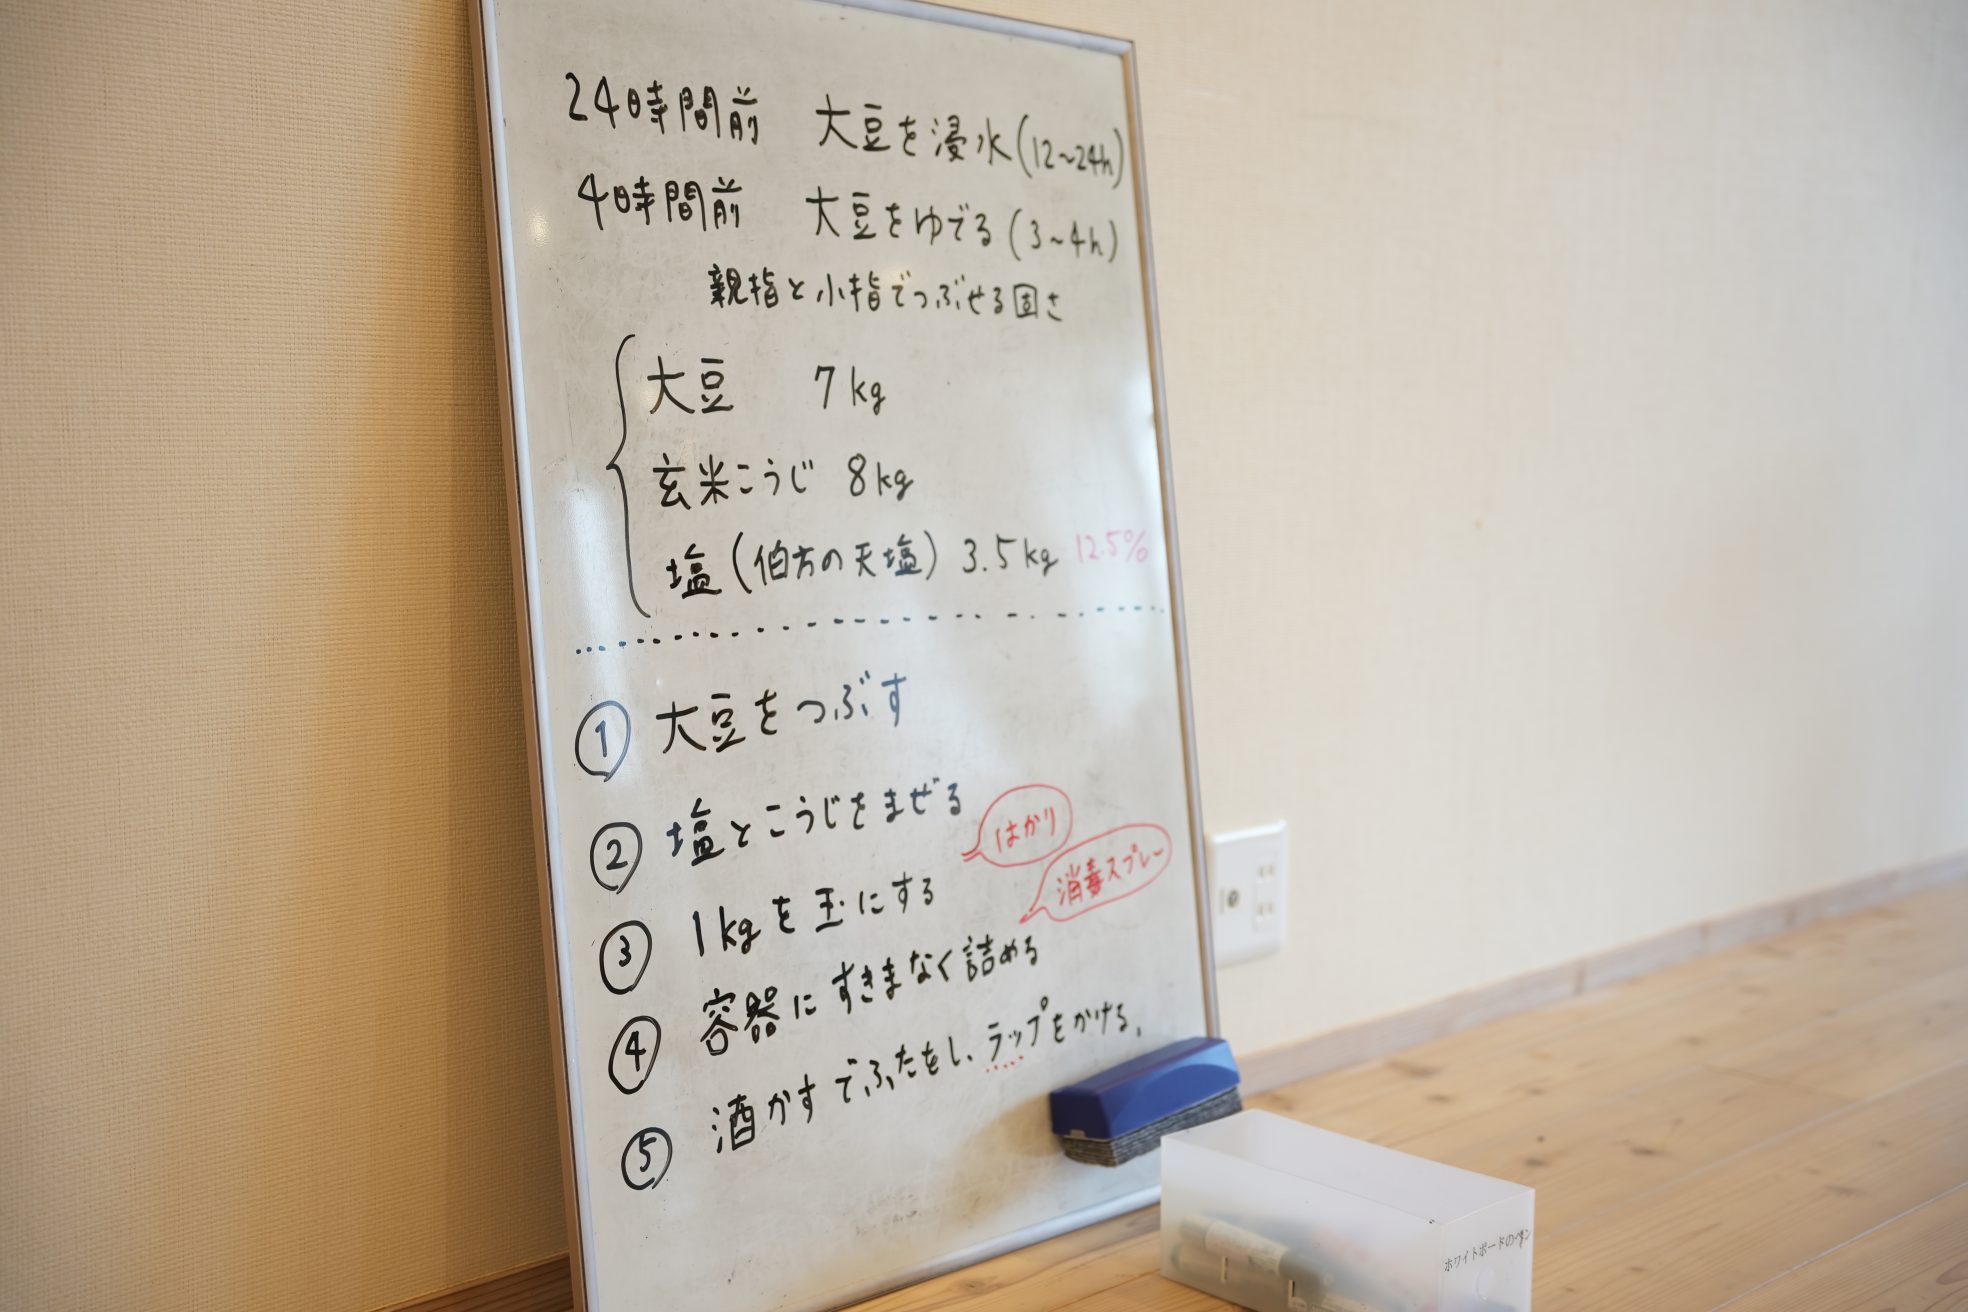 24時間前 大豆を浸水(12~24h)
4時間前 大豆をゆでる(3~4h)
親指と小指でつぶせる固さ
大豆 7kg
玄米こうじ 8kg
塩(伯方の天塩) 3.5kg 12.5%
① 大豆をつぶす
② 塩とこうじをまぜる
はかり
③ 1kgを玉にする
消毒スプレー
④ 容器にすきまなく詰める
⑤ 酒かすでふたをし、ラップをかける。
ホワイトボードのペン